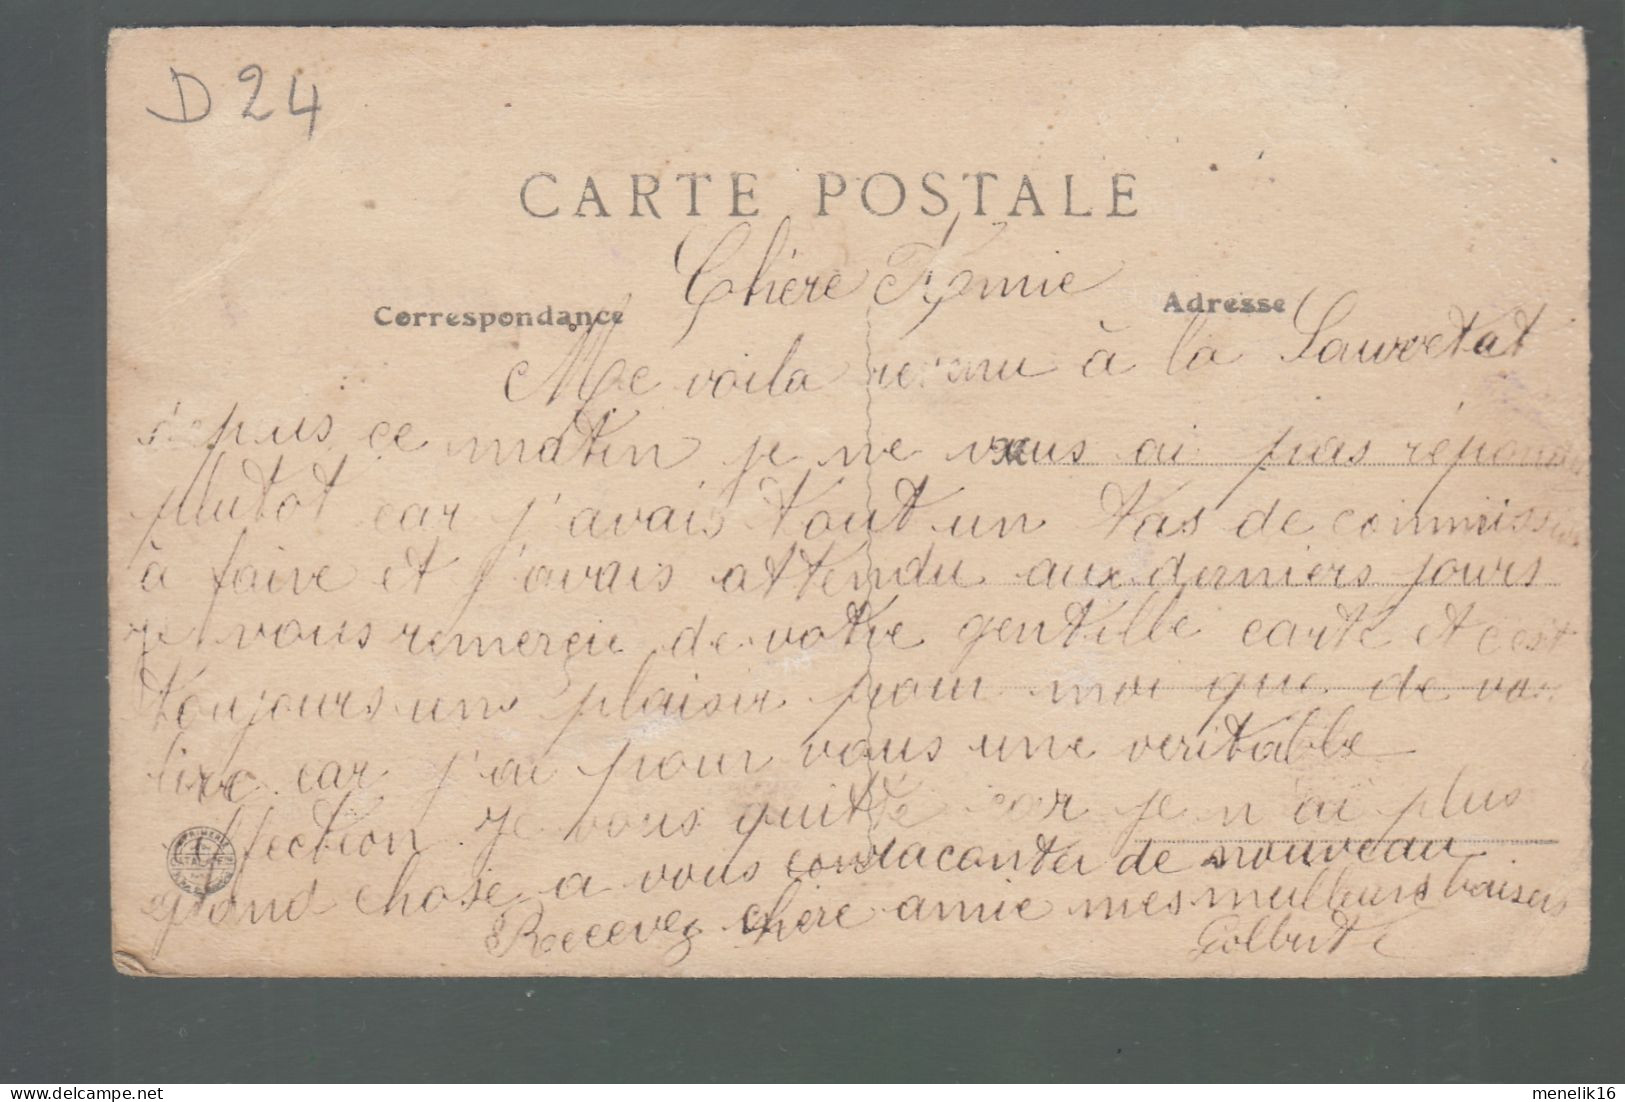 D 24
CARTE POSTALE
Chère Amie
Correspondance
Adresse
Me voila revenu à la Sauvetat
depuis ce matin je ne vous ai pas répondu
plutot car j'avais tout un tas de commissions
à faire et j'avais attendu aux derniers jours
je vous remercie de votre gentille carte et c'est
toujours un plaisir pour moi que de vous
lire car j'ai pour vous une veritable
affection. Je vous quitte car je n'ai plus
grand chose a vous raconter de nouveau
Recevez chère amie mes meilleurs baisers
menelik16